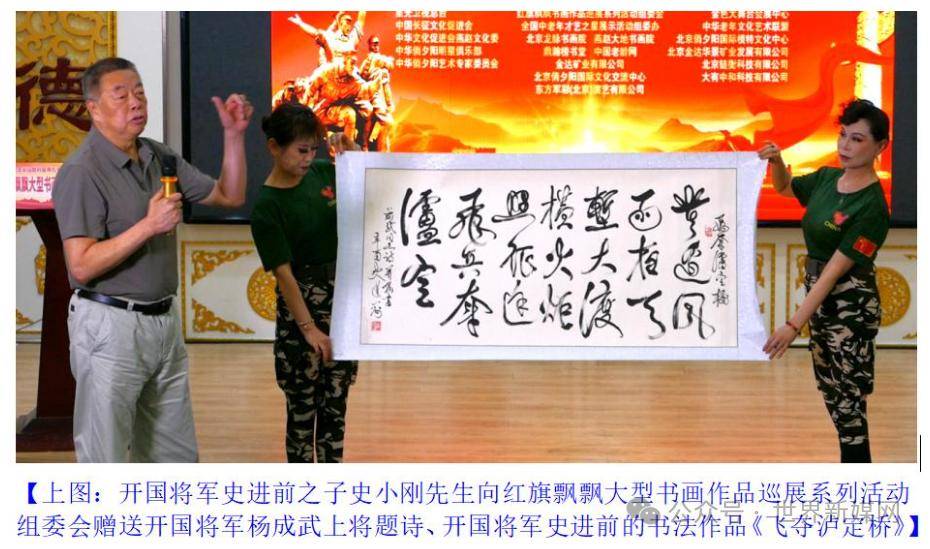 中国长征文化促进会
中华文化促进会燕赵文化委
中华俏夕阳明星俱乐部
中华俏夕阳艺术专家委员会
红旗飘飘书画作品巡展系列活动组委会
全国中老年才艺之星展示活动组委办
北京龙脉书画院 燕赵大地书画院
中国老龄网
金达矿业有限公司
北京俏夕阳国际文化交流中心
中华老年文化艺术联盟
北京俏夕阳国际模特文化中心
北京金达华景矿业发展有限公司
大有中和科技有限公司
德
飘飘大型书
風
雨
天
塹大渡
橫火炬
照征途
飛兵奪
瀘定
【上图：开国将军史进前之子史小刚先生向红旗飘飘大型书画作品巡展系列活动
组委会赠送开国将军杨成武上将题诗、开国将军史进前的书法作品《飞夺泸定桥》】
公众号·世界新媒网